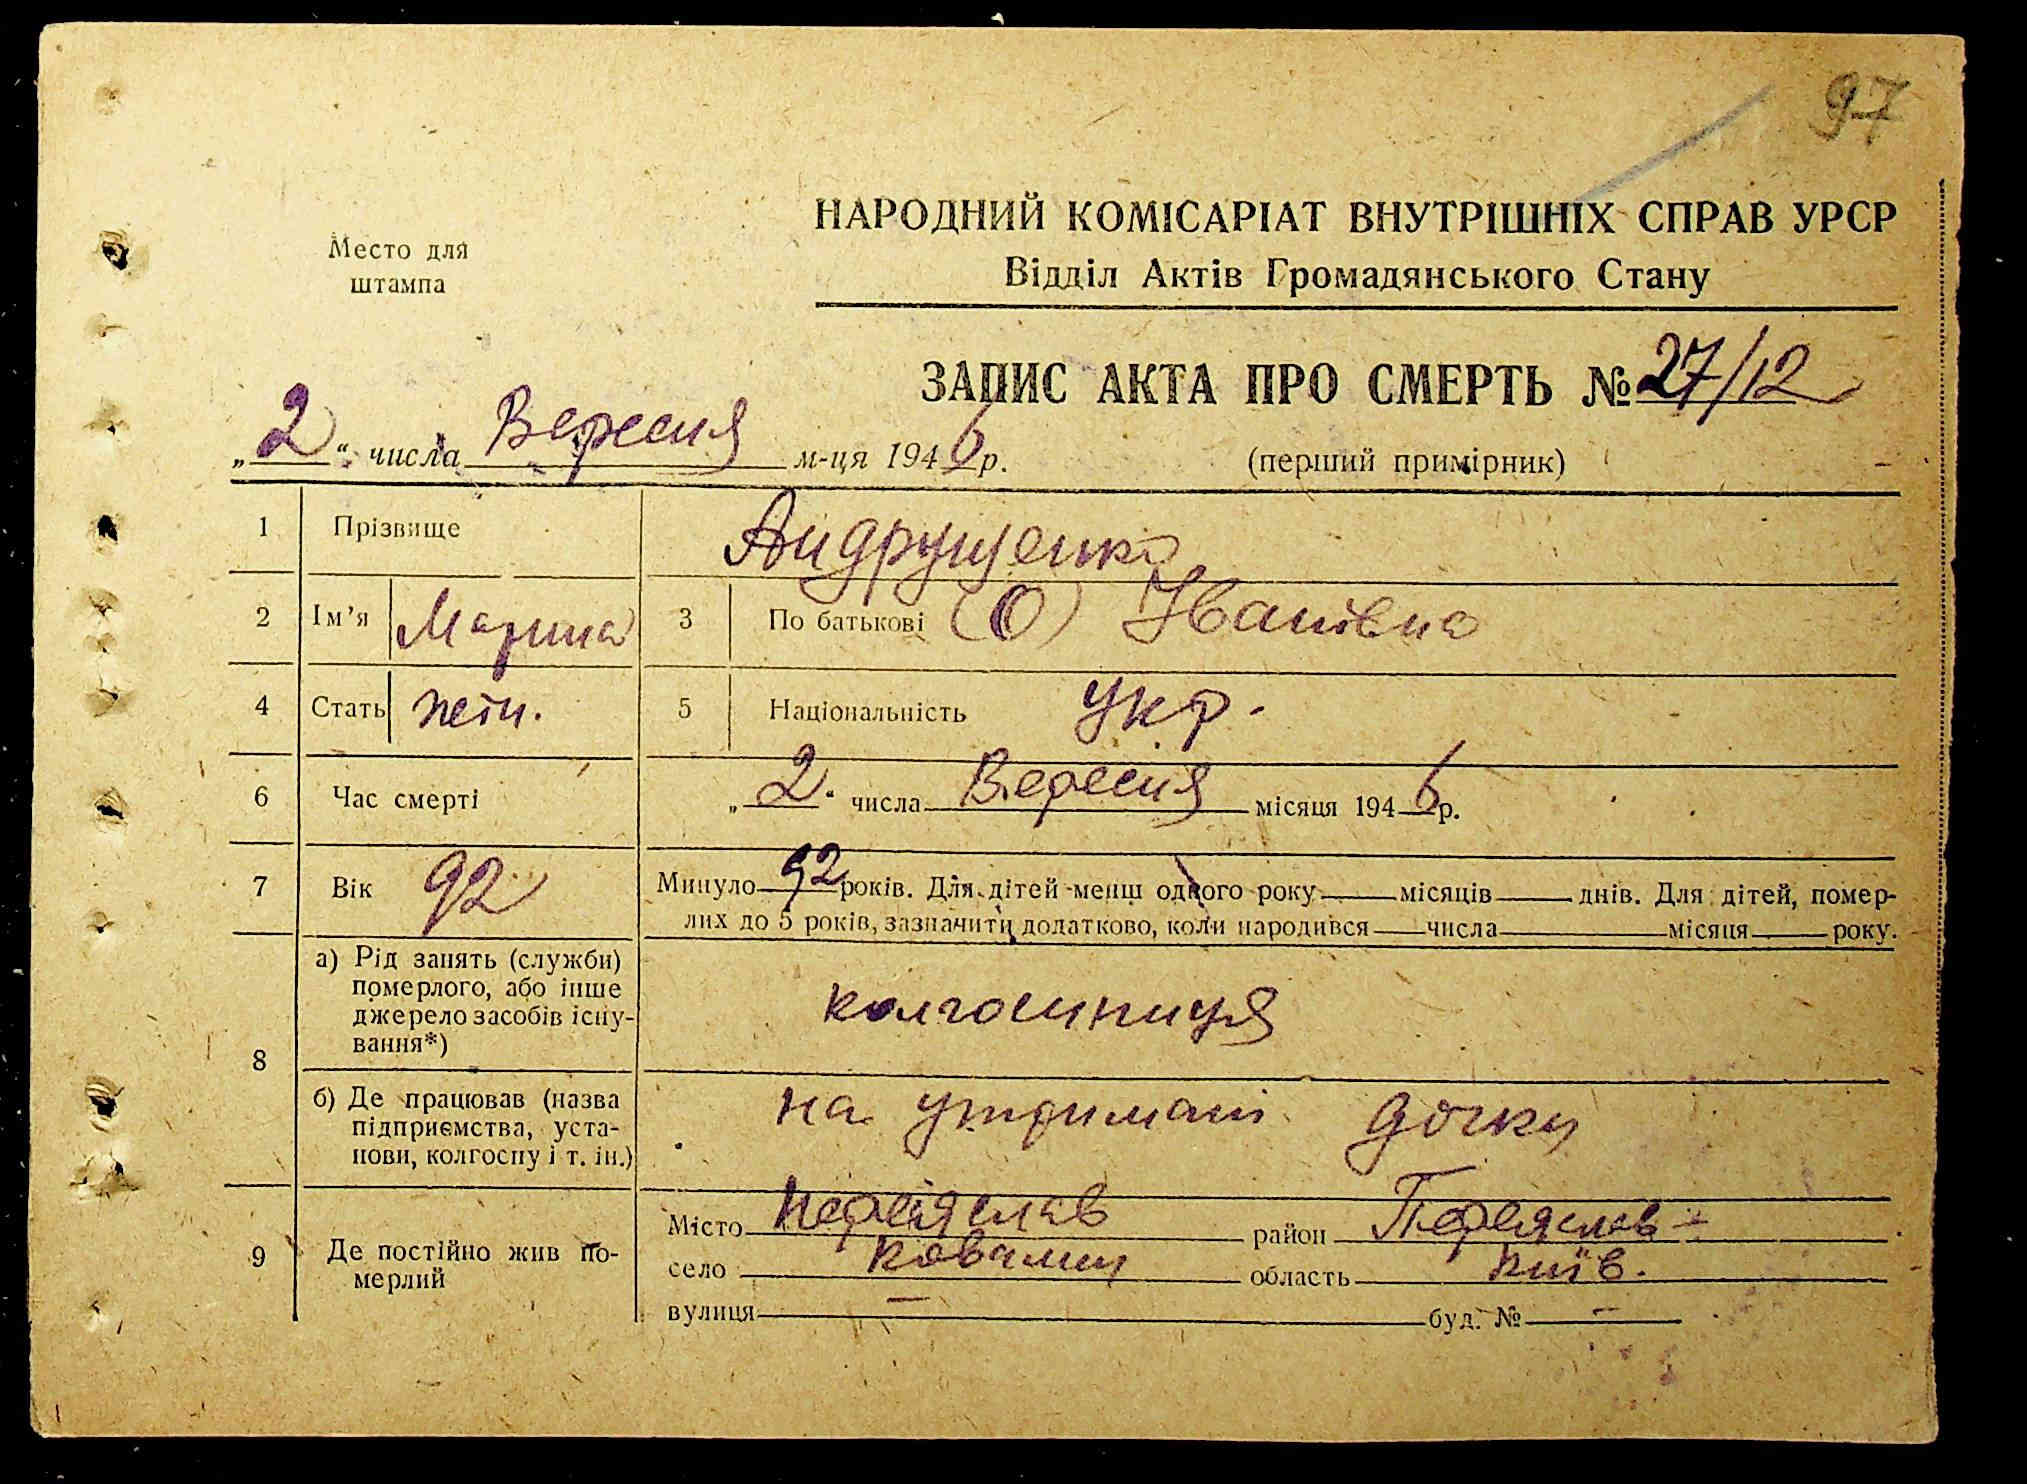 97
Место для
штампа
НАРОДНИЙ КОМІСАРІАТ ВНУТРІШНІХ СПРАВ УРСР
Відділ Актів Громадянського Стану
ЗАПИС АКТА ПРО СМЕРТЬ № 27/12
„2“ числа Вересня м-ця 1946 р.
(перший примірник)
1 Прізвище Андрущенко
2 Ім'я Марина 3 По батькові (О) Іванівна
4 Стать жін. 5 Національність укр.
6 Час смерті „2“ числа Вересня місяця 1946 р.
7 Вік 92 Минуло 92 років. Для дітей менш одного року — місяців — днів. Для дітей, помер-
лих до 5 років, зазначити додатково, коли народився — числа — місяця — року.
8 а) Рід занять (служби)
померлого, або інше
джерело засобів існу-
вання*)
колгоспниця
б) Де працював (назва
підприємства, уста-
нови, колгоспу і т. ін.)
на утримані дочки
9 Де постійно жив по-
мерлий
Місто Переяслав район Переяслав-
село Ковалин область Київ.
вулиця — буд. № —